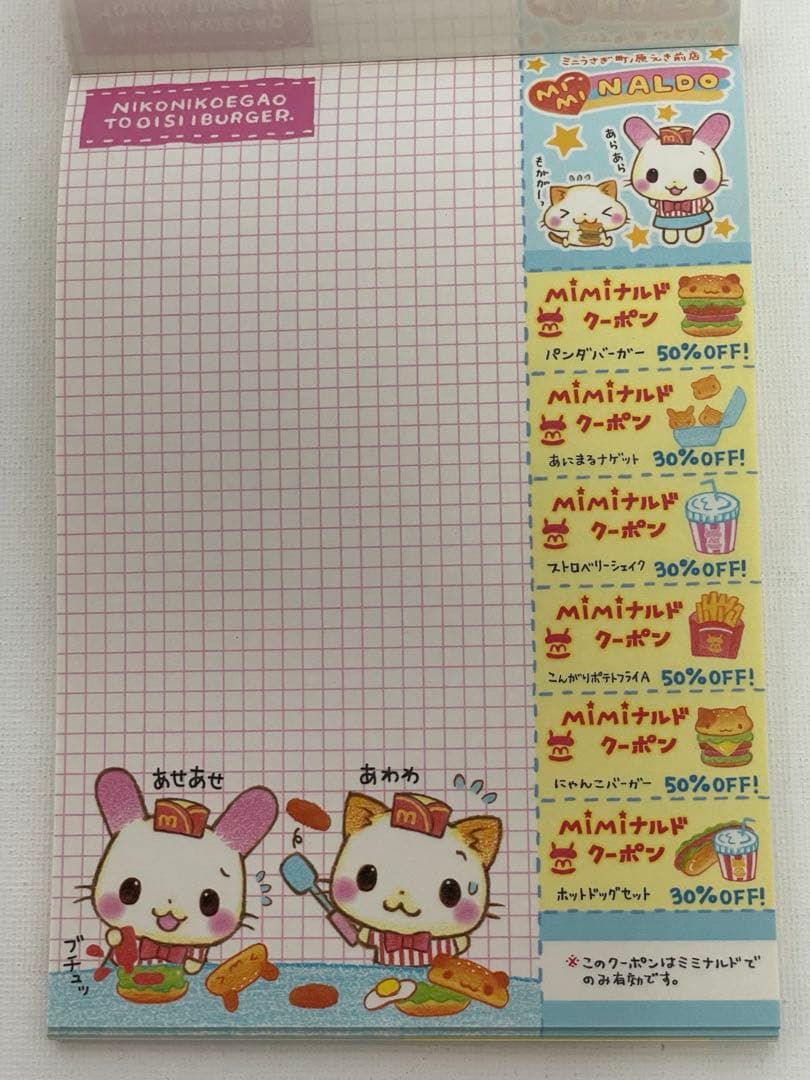 NIKONIKOEGAO
TO OISII BURGER.
ミニうさぎ町ノ原えき前店
MiMi NALDO
あらあら
もががーっ
MiMiナルド
クーポン
パンダバーガー 50%OFF!
MiMiナルド
クーポン
あにまるナゲット 30%OFF!
MiMiナルド
クーポン
ストロベリーシェイク 30%OFF!
MiMiナルド
クーポン
こんがりポテトフライA 50%OFF!
MiMiナルド
クーポン
にゃんこバーガー 50%OFF!
MiMiナルド
クーポン
ホットドッグセット 30%OFF!
※このクーポンはミミナルドで
のみ有効です。
あせあせ
あわわ
m
m
ブチュッ